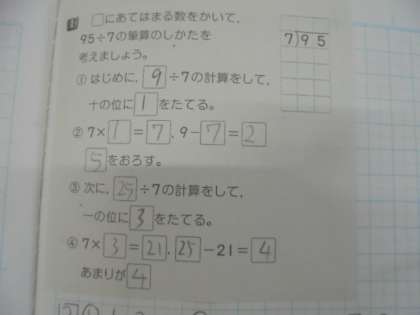 1 □にあてはまる数をかいて,
95÷7の筆算のしかたを
考えましょう。
7)95
① はじめに, 9÷7の計算をして,
十の位に 1 をたてる。
② 7× 1 = 7, 9- 7 = 2
5 をおろす。
③ 次に, 25 ÷7の計算をして,
一の位に 3 をたてる。
④ 7× 3 = 21, 25 -21= 4
あまりが 4